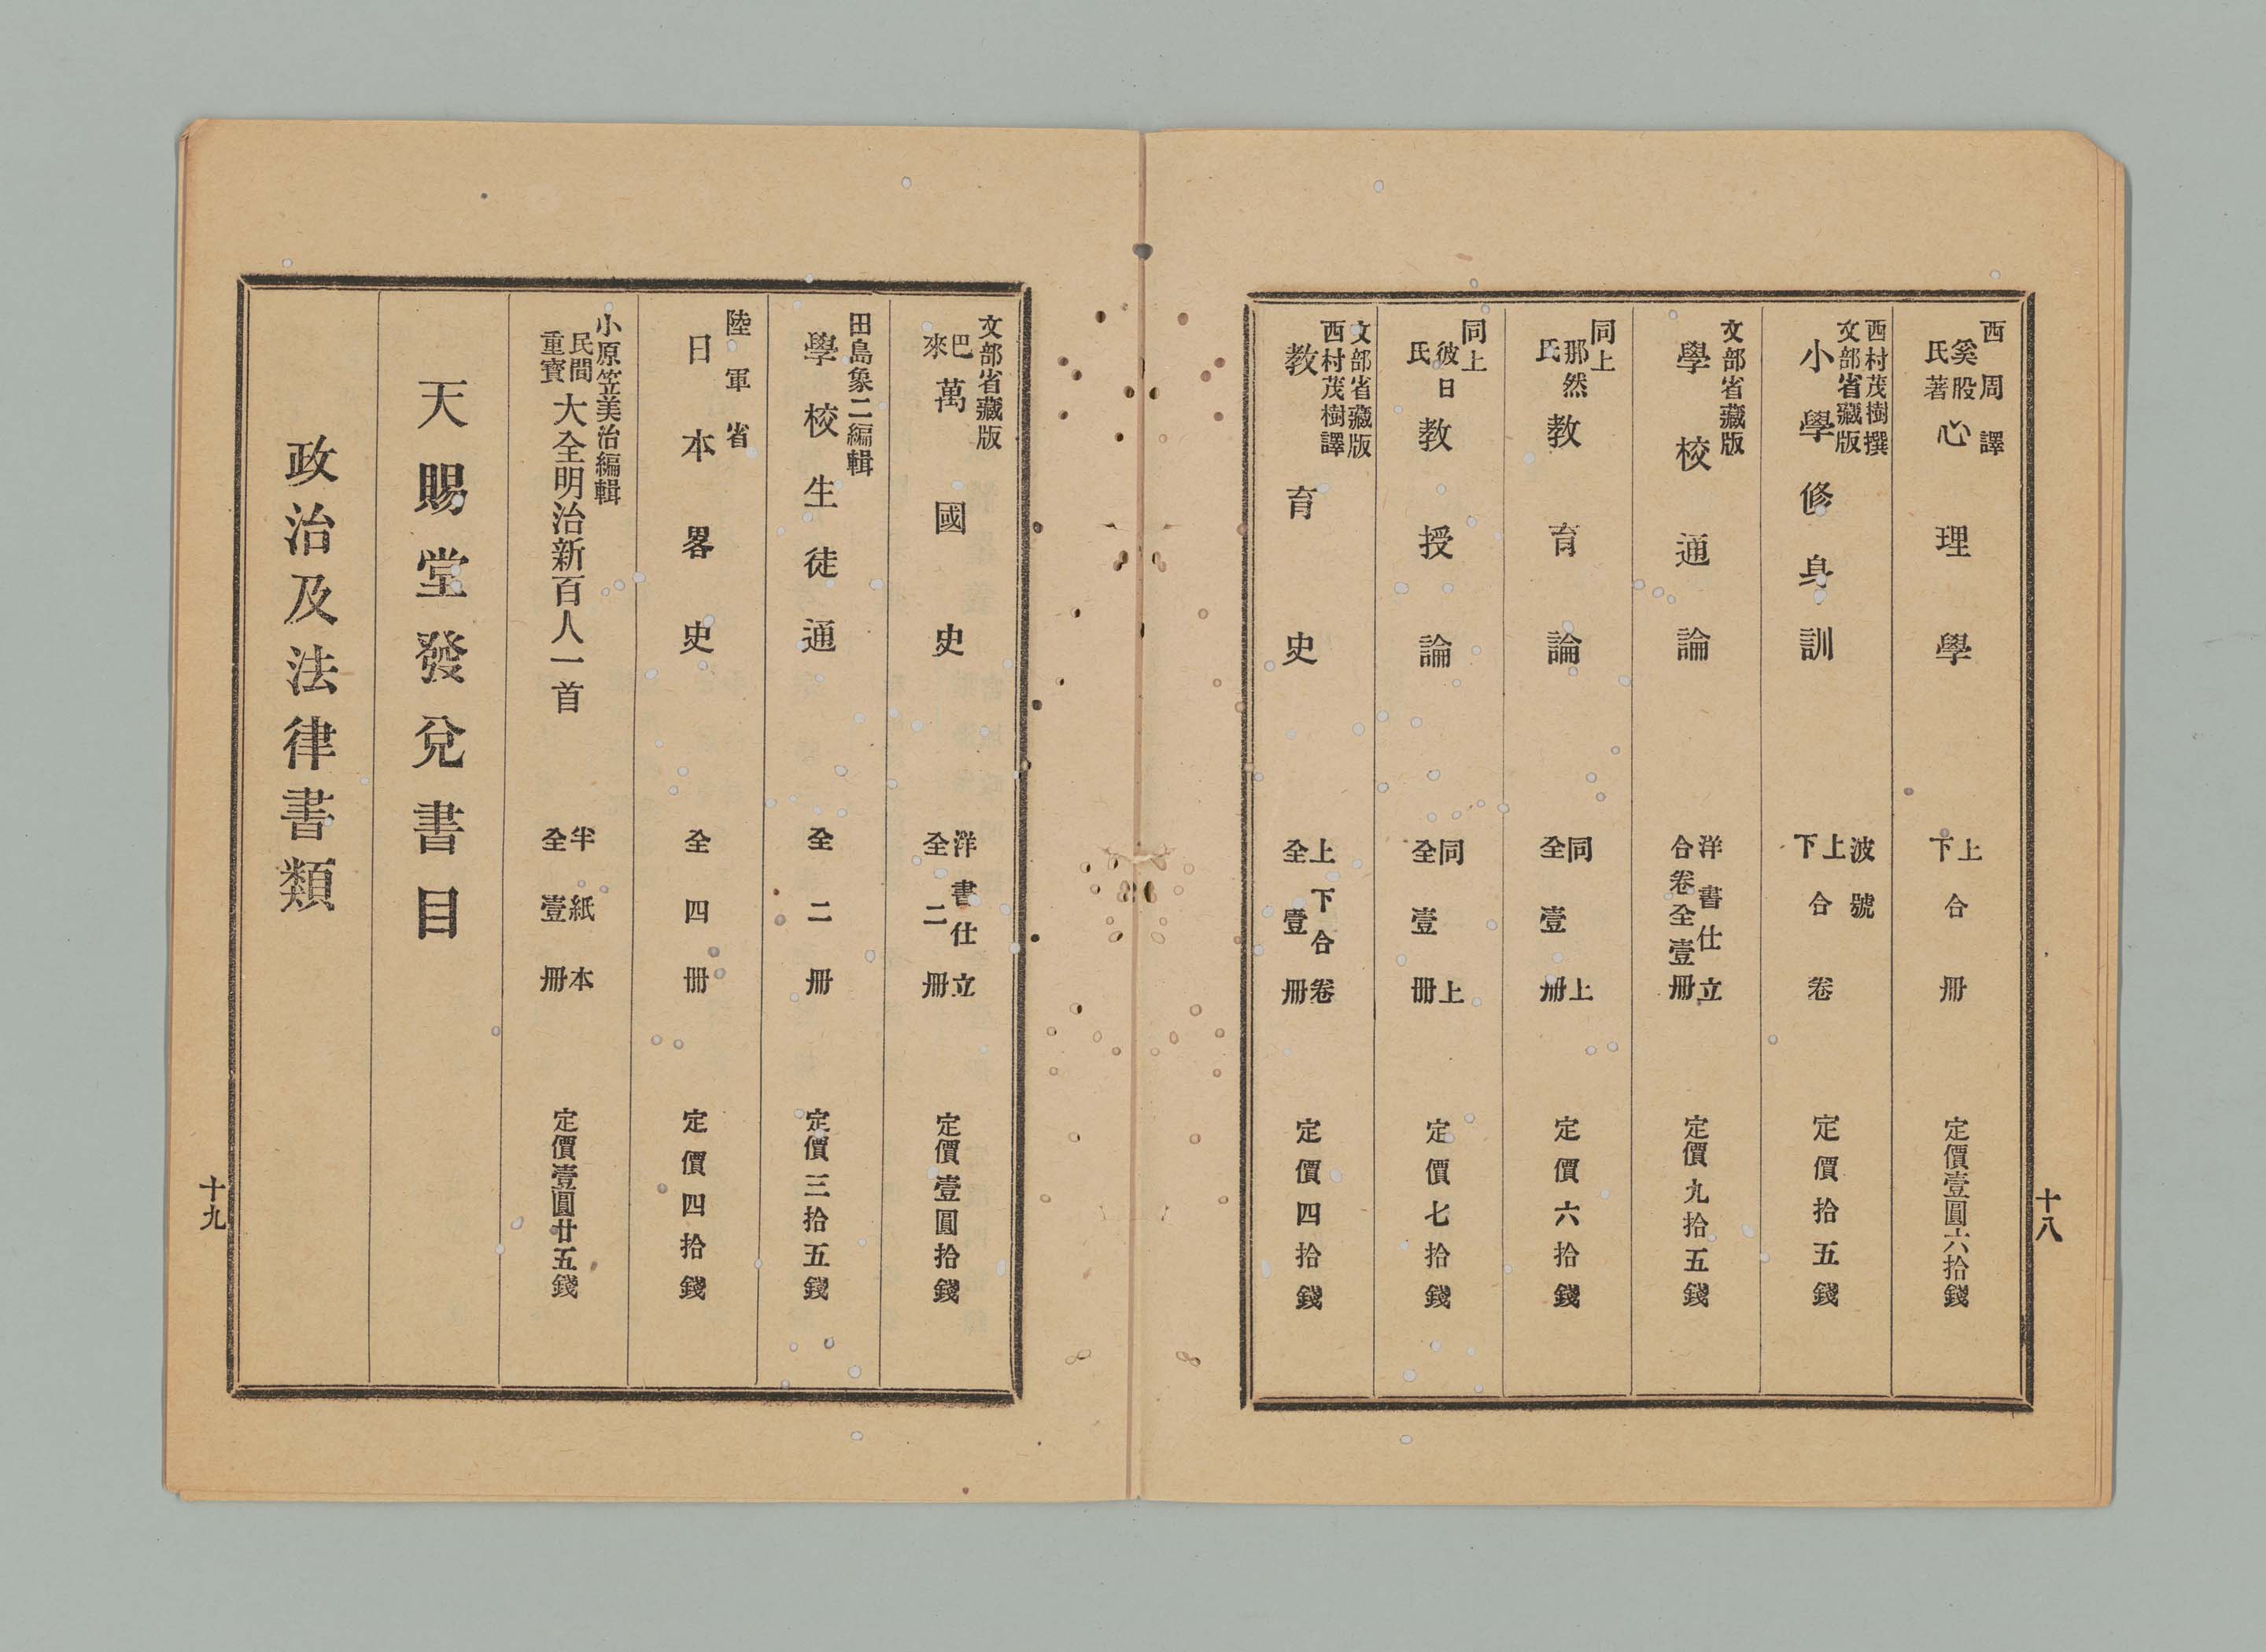 西周譯
奚般氏著
心理學
上下合冊
定價壹圓六拾錢
西村茂樹撰
文部省藏版
小學修身訓
波號
上下合卷
定價拾五錢
文部省藏版
學校通論
洋書仕立
合卷全壹冊
定價九拾五錢
同上
那然氏
教育論
同上
全壹冊
定價六拾錢
同上
彼日氏
教授論
同上
全壹冊
定價七拾錢
文部省藏版
西村茂樹譯
教育史
上下合卷
全壹冊
定價四拾錢
十八
文部省藏版
巴來
萬國史
洋書仕立
全二冊
定價壹圓拾錢
田島象二編輯
學校生徒通
全二冊
定價三拾五錢
陸軍省
日本畧史
全四冊
定價四拾錢
小原笠美治編輯
民間重寳
大全明治新百人一首
半紙本
全壹冊
定價壹圓廿五錢
天賜堂發兌書目
政治及法律書類
十九